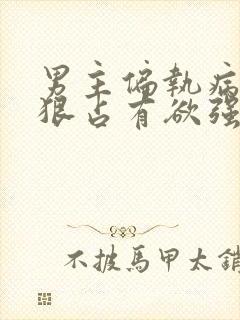 男主偏执病
狠占有欲强
不披馬甲太銷